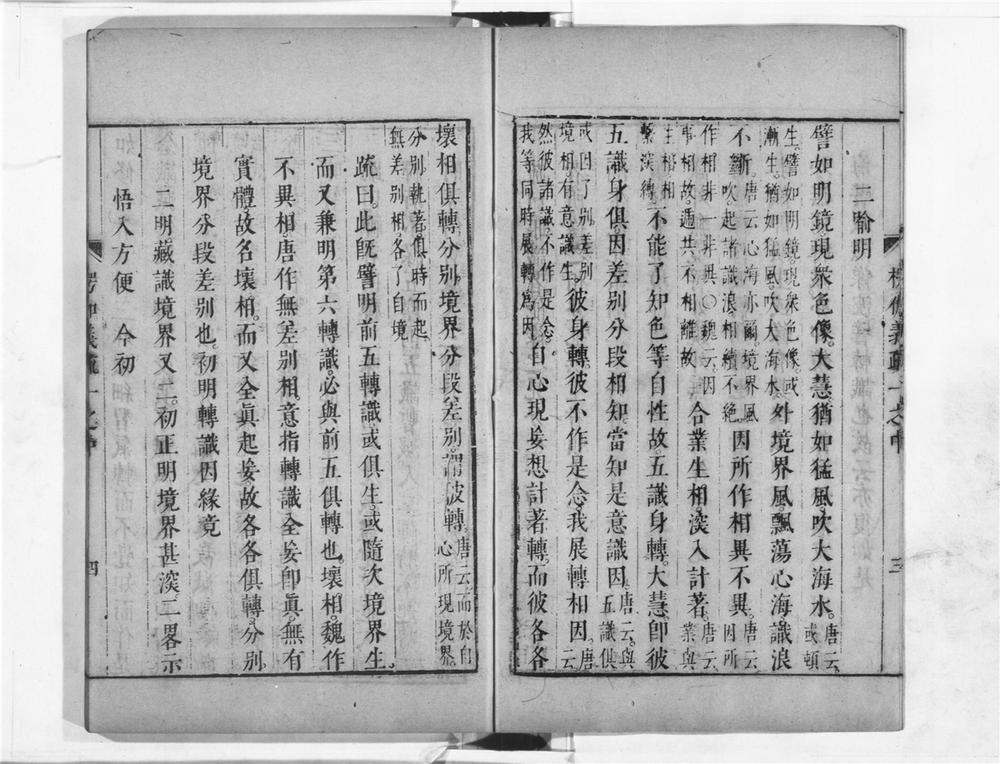 三喻明
譬如明鏡現眾色像。大慧猶如猛風。吹大海水。唐云。或頓
生。譬如明鏡。現眾色像。或漸生。猶如猛風。吹大海水。外境界風。飄蕩心海。識浪
不斷。唐云。心海亦爾。境界風吹。起諸識浪。相續不絕。因所作相異不異。唐云。因所
作相。非一非異。○魏云。因事相故。遞共不相離故。合業生相。深入計著。唐云。業與
生相。相繫深縛。不能了知色等自性故。五識身轉。大慧即彼
五識身俱。因差別分段相知。當知是意識因。唐云。與五識俱。
或因了別差別境相。有意識生。彼身轉。彼不作是念。我展轉相因。唐云。
然彼諸識。不作是念。我等同時展轉為因。自心現妄想計著轉。而彼各各
楞伽義疏一之中
三
壞相俱轉。分別境界。分段差別。謂彼轉。唐云。而於自心所現境界。
分別執著。俱時而起。無差別相。各了自境
疏曰。此既譬明前五轉識。或俱生。或隨次境界生
而又兼明第六轉識。必與前五俱轉也。壞相。魏作
不異相。唐作無差別相。意指轉識全妄即眞。無有
實體。故名壞相。而又全眞起妄。故各各俱轉。分別
境界。分段差別也。初明轉識因緣竟
二明藏識境界又二。初正明境界甚深。二畧示
悟入方便　今初
楞伽義疏一之中
四